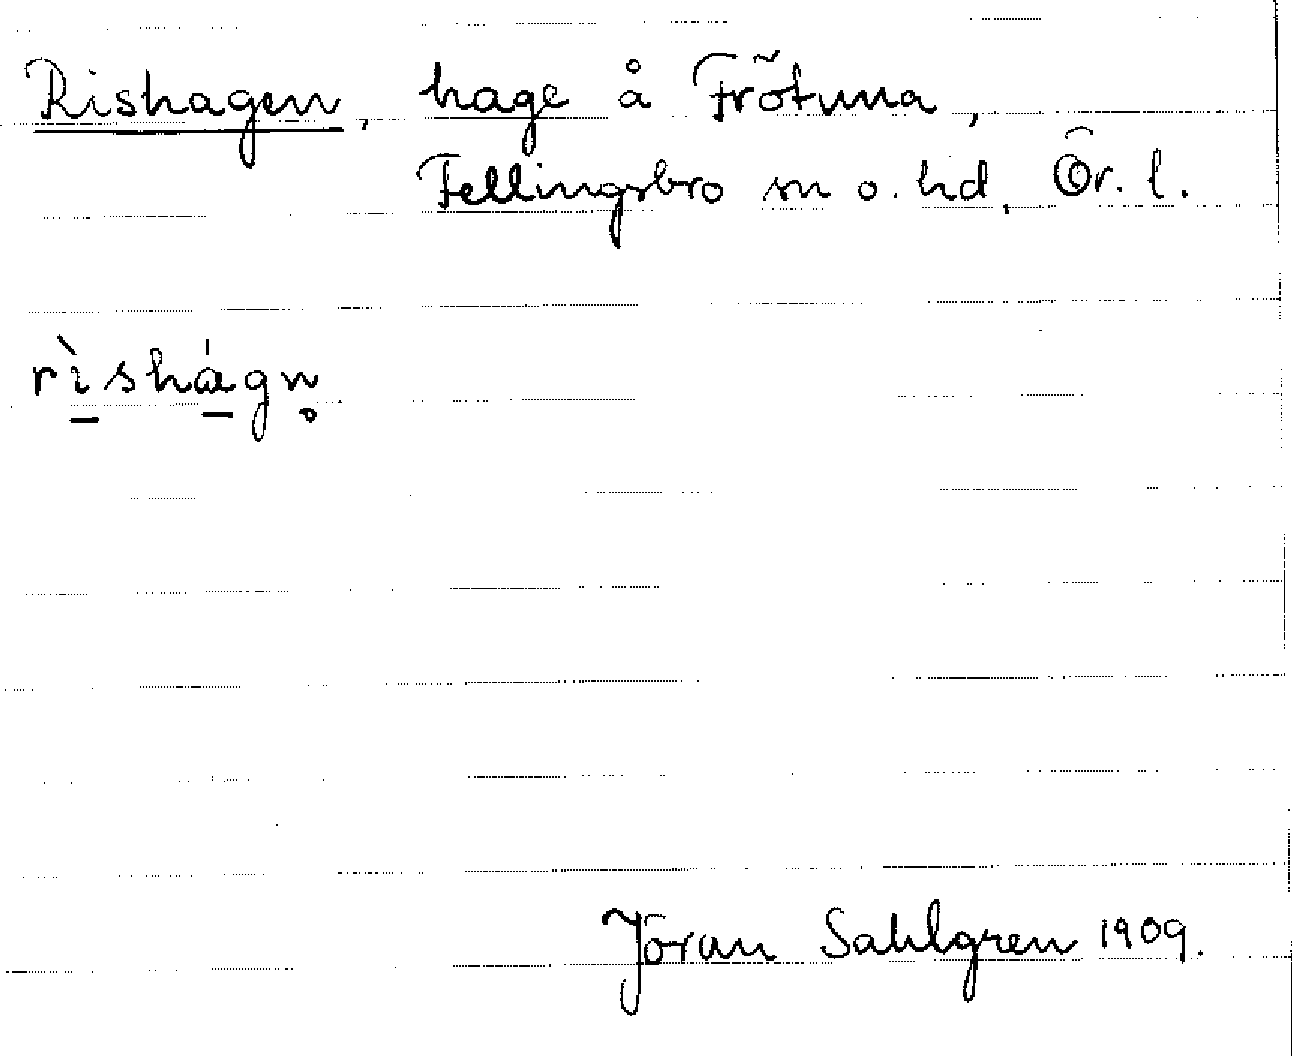 Rishagen, hage å Frötuna,
Fellingsbro sn o. hd, Ör. l.
rì̱shá̱gn̥
Jöran Sahlgren 1909.